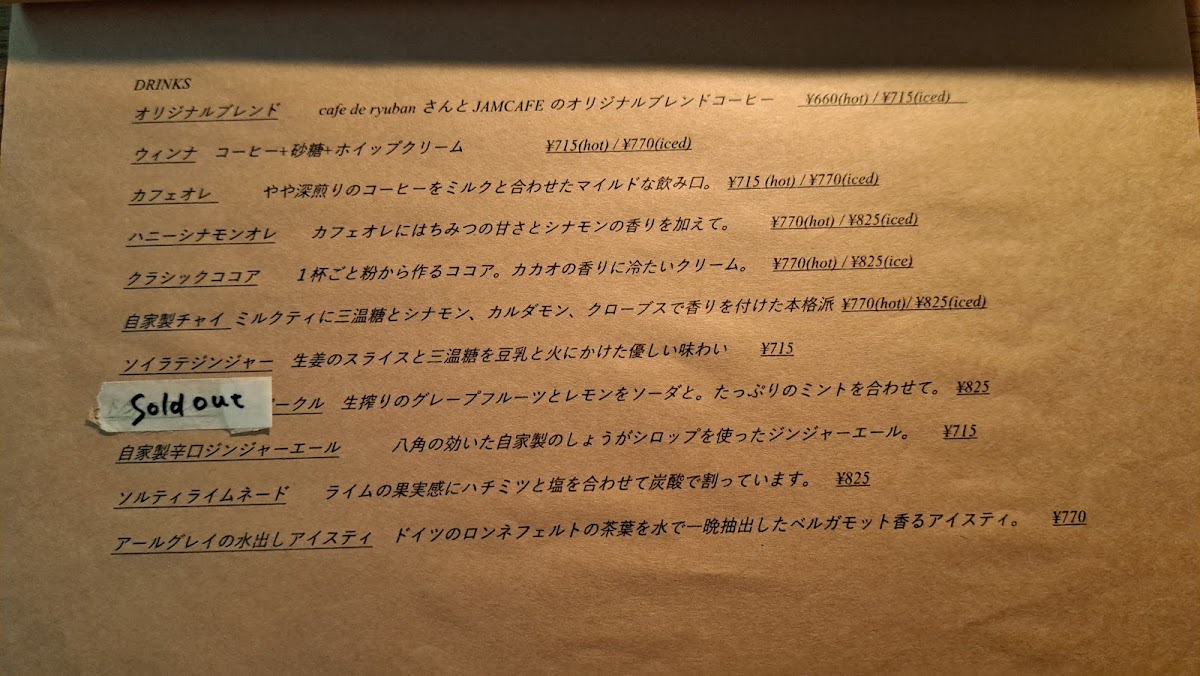 DRINKS
オリジナルブレンド cafe de ryuban さんと JAMCAFE のオリジナルブレンドコーヒー ¥660(hot) / ¥715(iced)
ウィンナ コーヒー+砂糖+ホイップクリーム ¥715(hot) / ¥770(iced)
カフェオレ やや深煎りのコーヒーをミルクと合わせたマイルドな飲み口。 ¥715 (hot) / ¥770(iced)
ハニーシナモンオレ カフェオレにはちみつの甘さとシナモンの香りを加えて。 ¥770(hot) / ¥825(iced)
クラシックココア 1杯ごと粉から作るココア。カカオの香りに冷たいクリーム。 ¥770(hot) / ¥825(ice)
自家製チャイ ミルクティに三温糖とシナモン、カルダモン、クローブスで香りを付けた本格派 ¥770(hot)/ ¥825(iced)
ソイラテジンジャー 生姜のスライスと三温糖を豆乳と火にかけた優しい味わい ¥715
Sold out ークル 生搾りのグレープフルーツとレモンをソーダと。たっぷりのミントを合わせて。 ¥825
自家製辛口ジンジャーエール 八角の効いた自家製のしょうがシロップを使ったジンジャーエール。 ¥715
ソルティライムネード ライムの果実感にハチミツと塩を合わせて炭酸で割っています。 ¥825
アールグレイの水出しアイスティ ドイツのロンネフェルトの茶葉を水で一晩抽出したベルガモット香るアイスティ。 ¥770